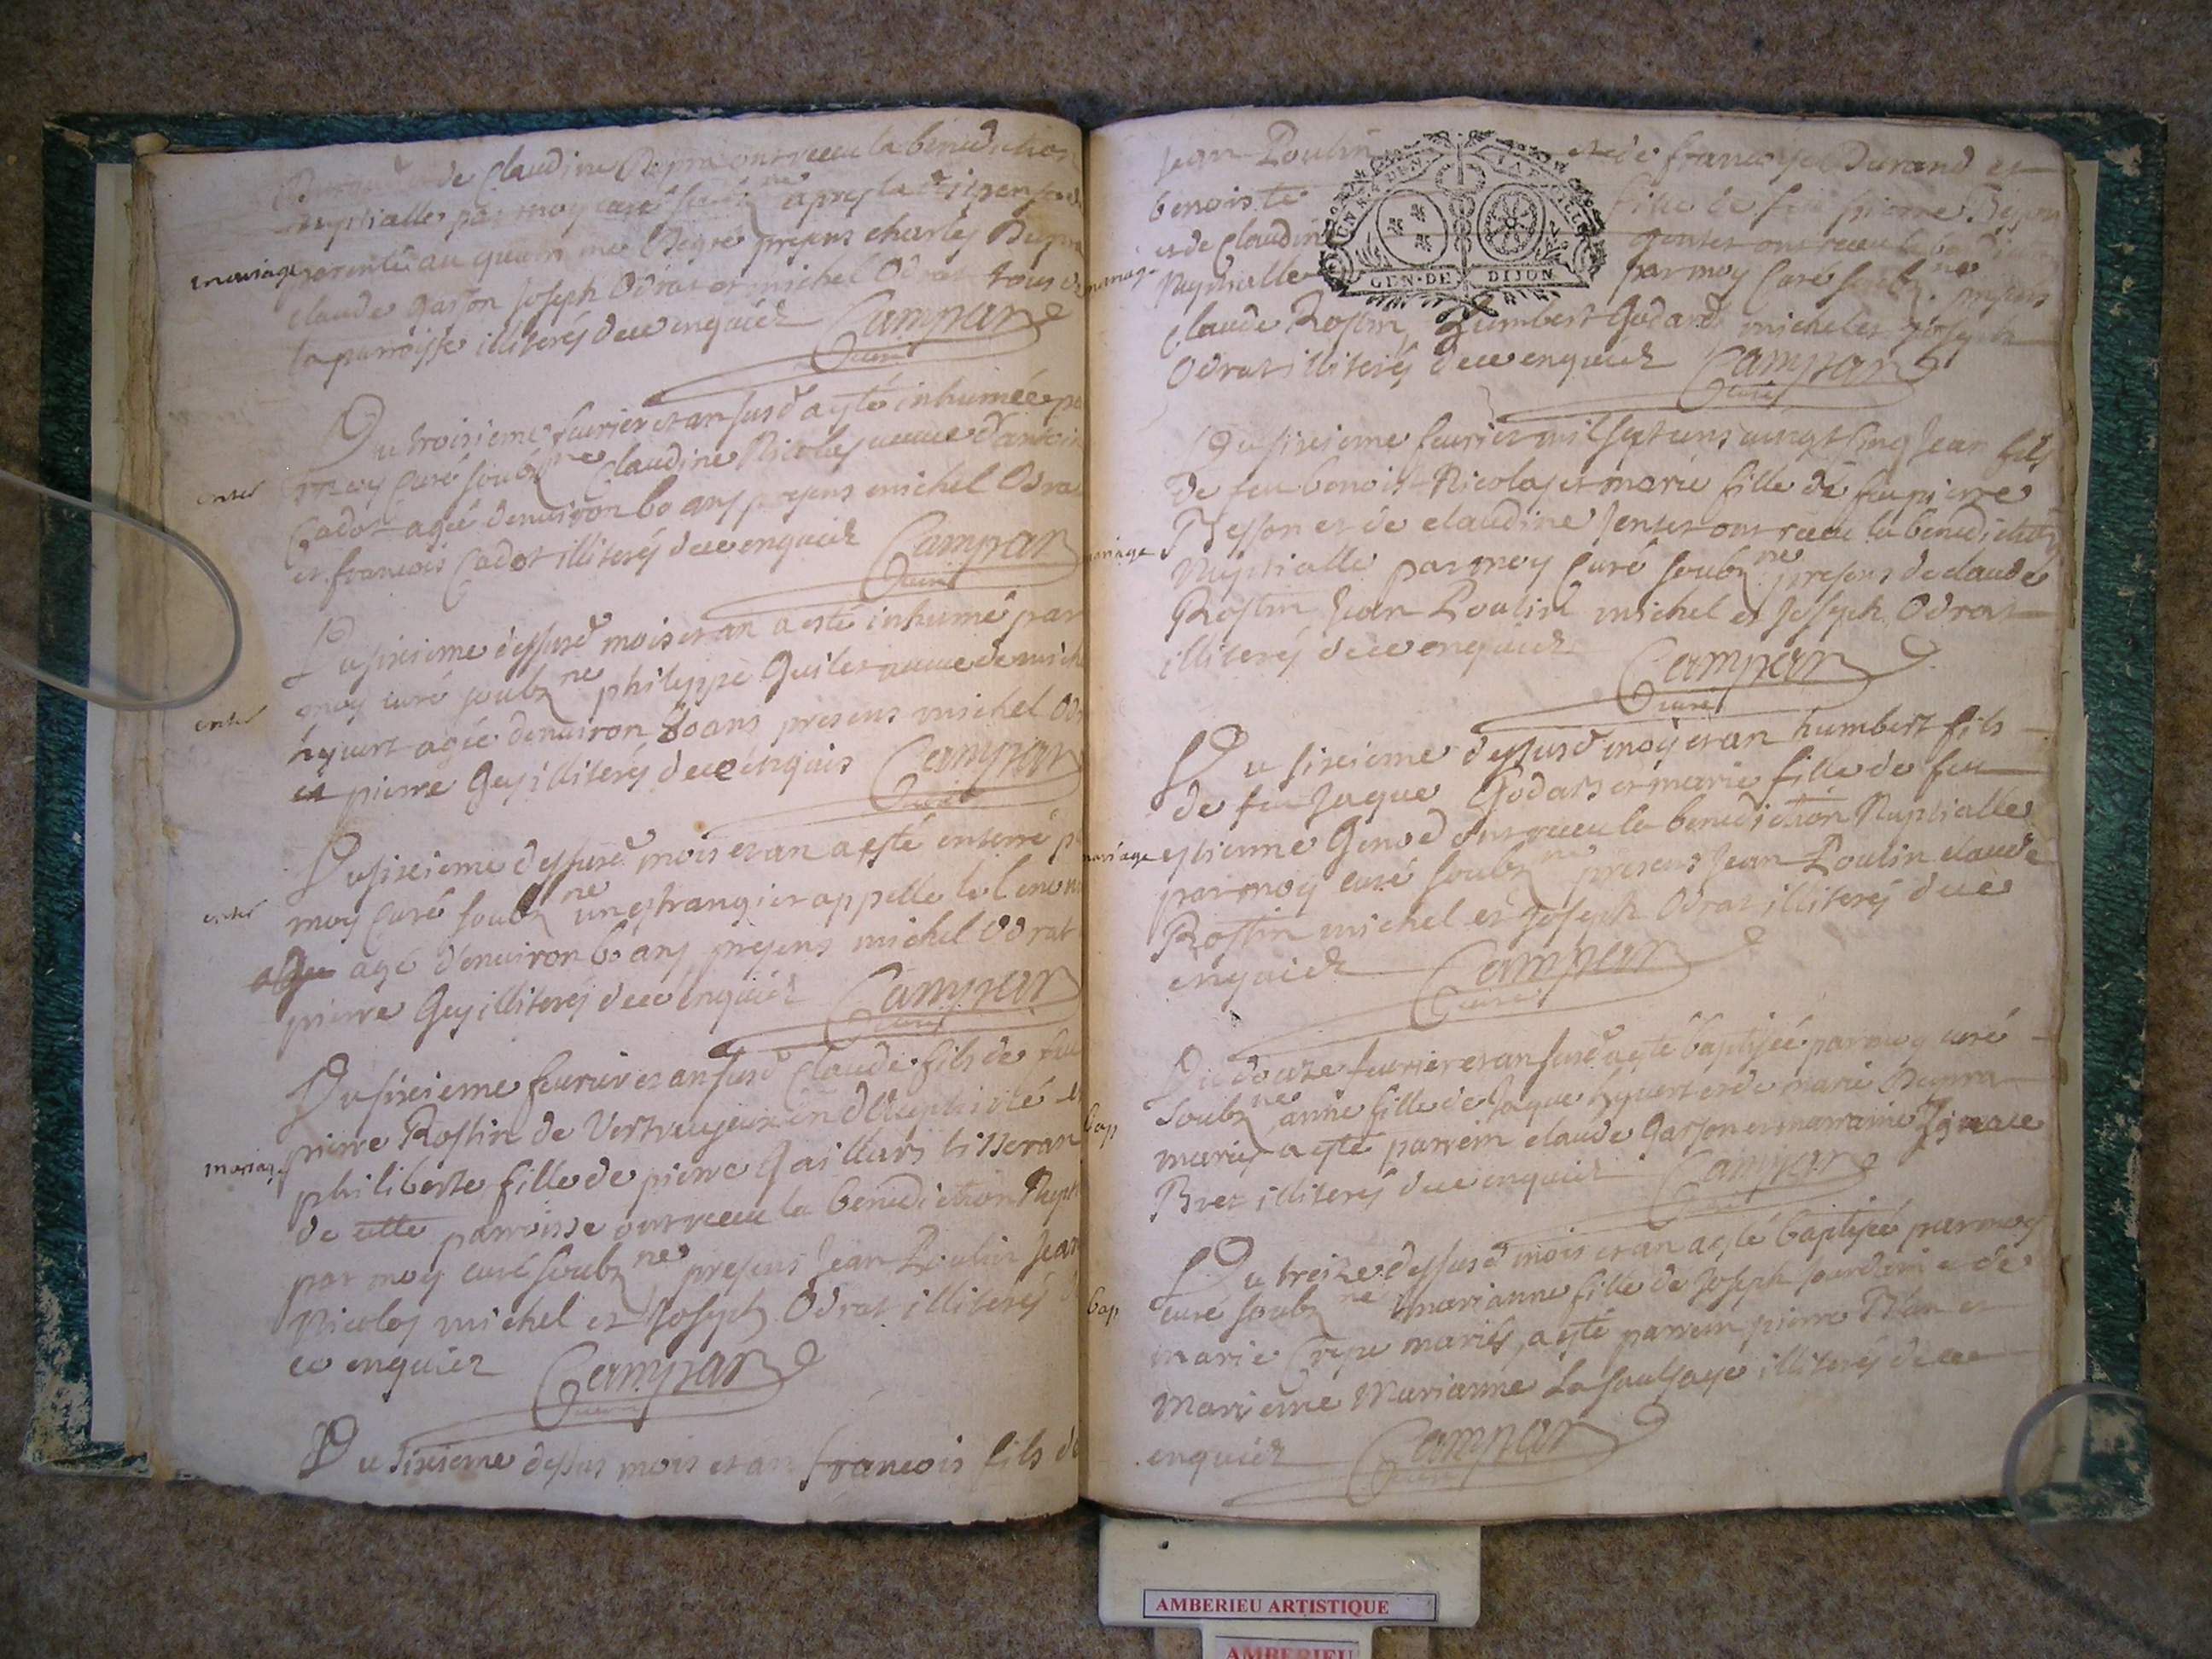 de Claudine Dupra ont receu la benediction
nuptialle par moy curé soubz ne apres la dispense de
mariage
parenté au quatrieme Degré presens charles Dupra
claude garson Joseph Odrat et michel Odrat tous de
la parroisse illiterés de ce enquiez Campan
Curé
Du troisieme feurier et an susd a esté inhumée par
enter
moy Curé soubz ne Claudine Nicolas ueuue d'antoine
Cadot agée denuiron 60 ans presens michel Odrat
et francois Cadot illiterés de ce enquiez Campan
Curé
Du sixieme dessusd mois et an a esté inhumé par
enter
moy curé soubz ne philippe Guilet ueuue de mich
hyuert agée denuiron 80 ans presens michel Od
et pierre Gey illiterés de ce enquis Campan
Curé
Du sixieme dessusd mois et an a esté enterré p
enter
moy Curé soubz ne un estrangier appelle
agé d'enuiron 60 ans presens michel Odrat
pierre Gey illiterés de ce enquiez Campan
Curé
Du sixieme feurier et an susd Claude fils de feu
pierre Rostin de Vertrieu en dauphiné et
mariage
philiberte fille de pierre Gaillard tisseran
de cette parroisse ont receu la benediction Nupt
par moy curé soubz ne presens Jean Poulin Jean
Nicolas michel et Joseph Odrat illiterés d
ce enquiez Campan
Curé
Du sixieme dessus mois et an francois fils de
Jean Poulin et de francoise Durand et
benoiste fille de feu pierre Besson
et de Claudine Jentet ont receu la bendi
mariage
Nuptialle par moy Curé soubz ne presens
GEN · DE DIJON
Claude Rostin, humbert Godard michel et Joseph
Odrat illiterés de ce enquiez Campan
Curé
Du sixieme feurier mil sept cens uingt cinq Jean fils
de feu benoist Nicolas et marie fille de feu pierre
Besson et de claudine Jentet ont receu la benediction
mariage
Nuptialle par moy Curé soubz ne presens de claude
Rostin Jean Poulin michel et Joseph Odrat
illiterés de ce enquiez
Campan
Curé
Du sixieme dessusd moy et an humbert fils
de feu Jaque Godard et marie fille de feu
mariage
estienne Genod ont receu la benediction Nuptialle
par moy curé soubz ne presens Jean Poulin claude
Rostin michel et Joseph Odrat illiterés de ce
enquiez Campan
Curé
Du douze feurier et an susd a esté baptisée par moy curé
soubz ne anne fille de Jaque hyuert et de marie Dupra
bap
mariés a esté parrein claude Garson et marraine Ignace
Bret illiterés de ce enquiez Campan
Du treize dessusd mois et an a esté baptisée par moy
bap
curé soubz ne marianne fille de Joseph Jourdain e de
marie Crepu mariés, a esté parrein pierre Blan et
mareine Marianne La saulsaye illiterés de ce
enquiez Campan
Curé
AMBERIEU ARTISTIQUE
AMBERIEU